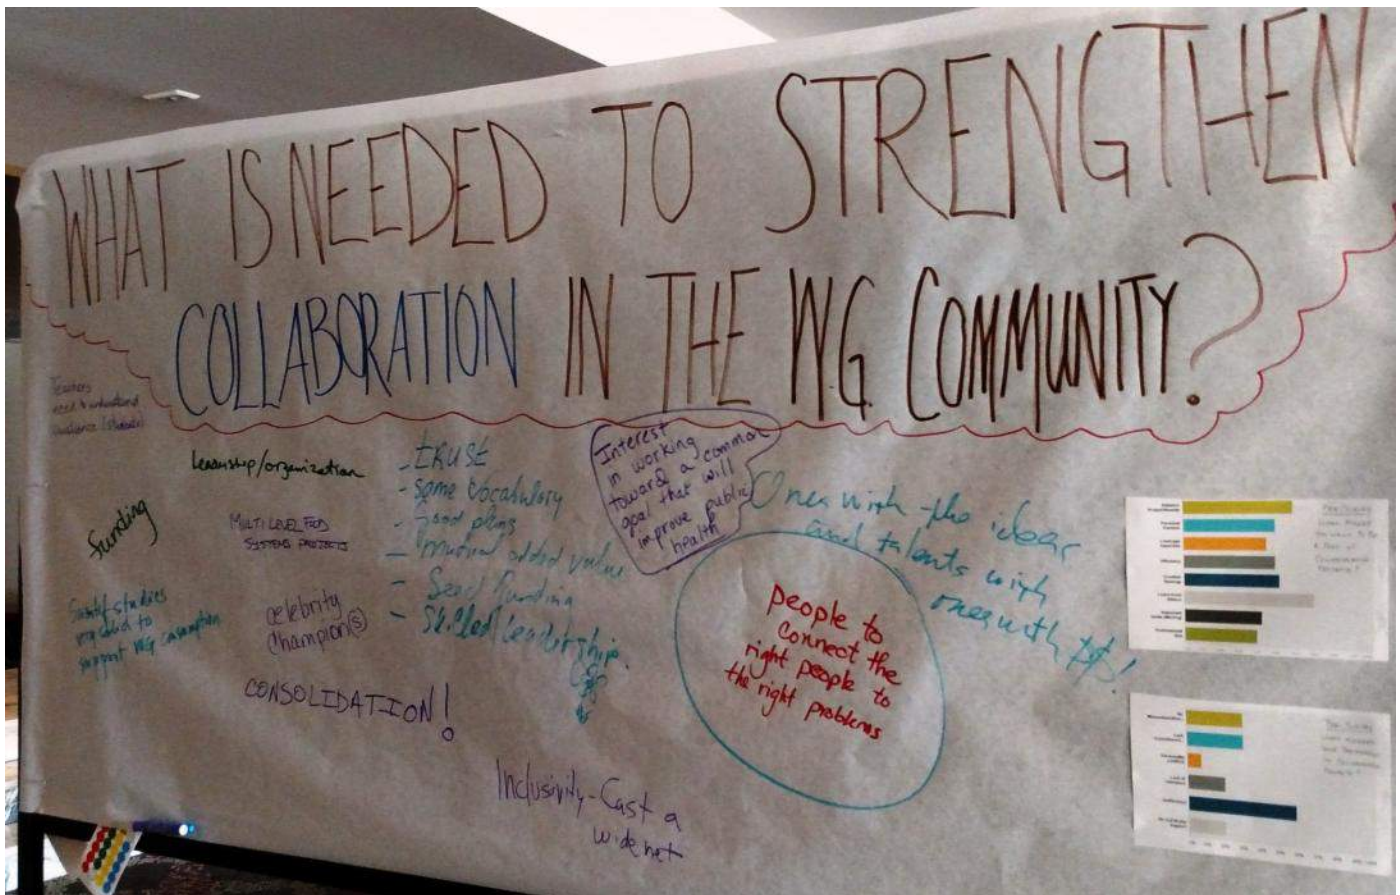 WHAT IS NEEDED TO STRENGTHEN
COLLABORATION IN THE WG COMMUNITY?
Teachers
need to understand
audience (students)
leadership/organization
funding
MULTI LEVEL FOOD
SYSTEMS PROJECTS
studies
required to
support WG consumption
celebrity
champion(s)
CONSOLIDATION!
- trust
- same vocabulary
- Good plans
- mutual added value
- Seed funding
- Skilled leadership
Interest
in working
toward a common
goal that will
improve public
health
Ones with the ideas
and talents with
ones with $$!
people to
connect the
right people to
the right problems
Inclusivity - Cast a
wide net